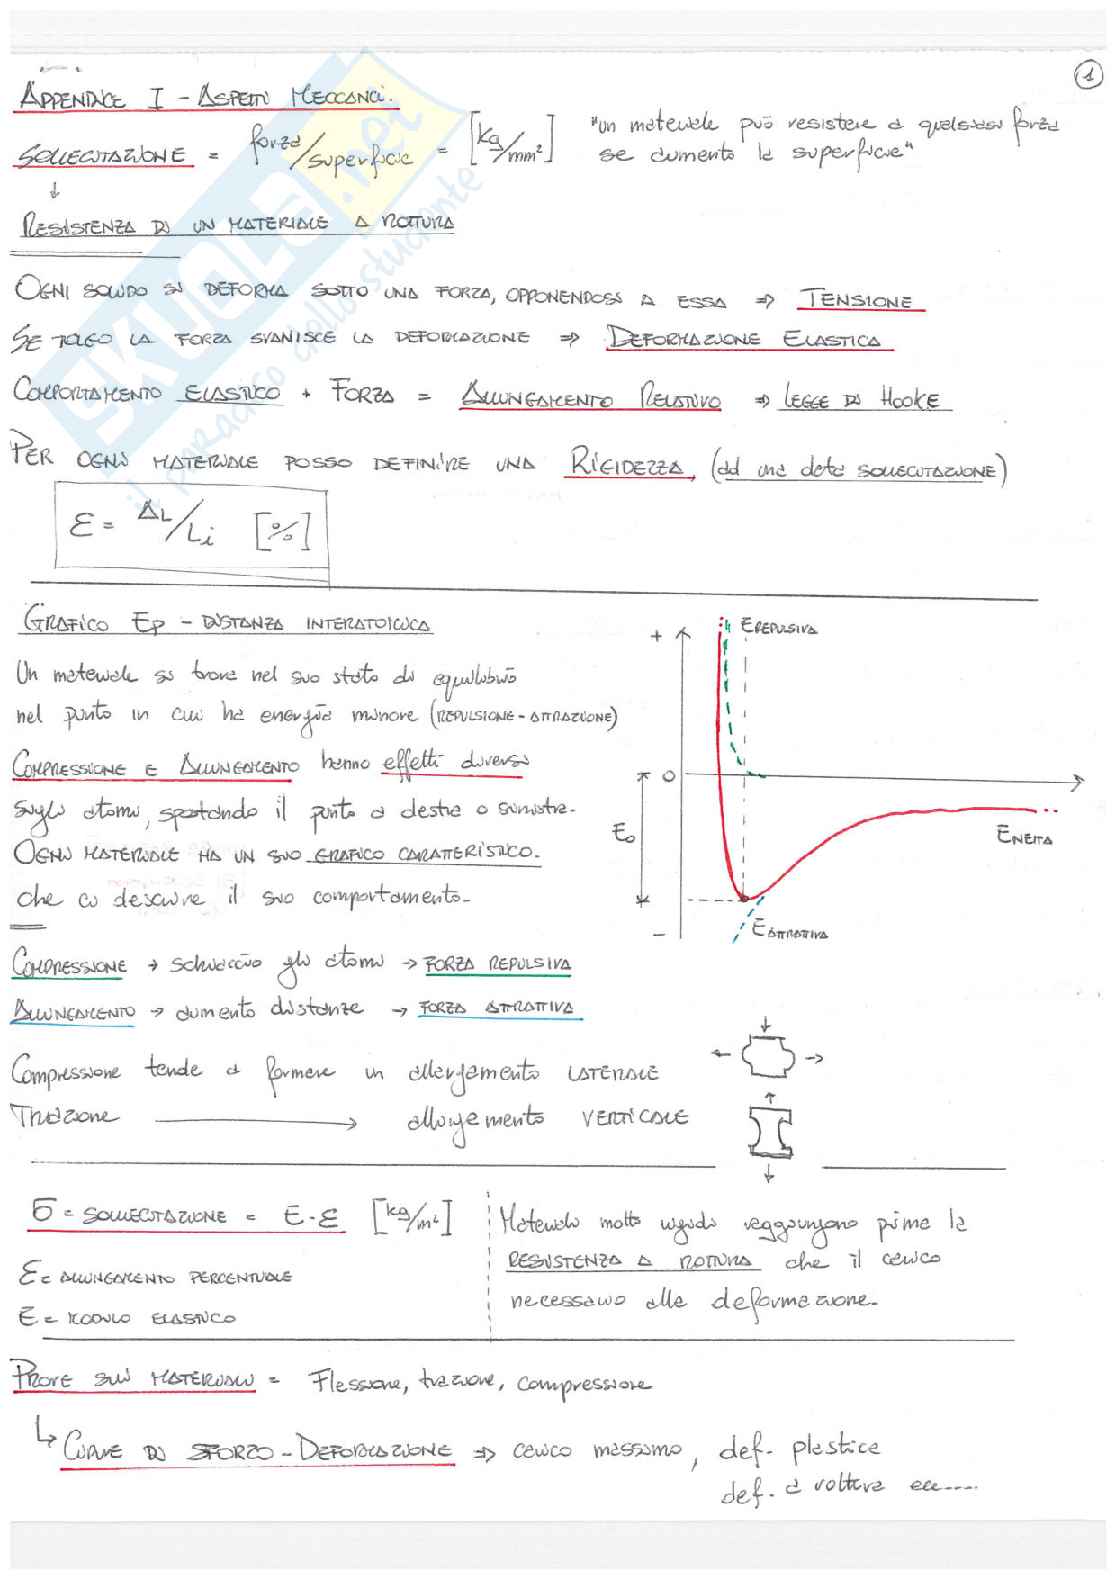 1
APPENDICE I - ASPETTI MECCANICI.
SOLLECITAZIONE = forza/superficie = [kg/mm²] "un materiale può resistere a qualsiasi forza
se aumento la superficie"
↓
RESISTENZA DI UN MATERIALE A ROTTURA
OGNI SOLIDO SI DEFORMA SOTTO UNA FORZA, OPPONENDOSI A ESSA ⇒ TENSIONE
SE TOLGO LA FORZA SVANISCE LA DEFORMAZIONE ⇒ DEFORMAZIONE ELASTICA
COMPORTAMENTO ELASTICO + FORZA = ALLUNGAMENTO RELATIVO ⇒ LEGGE DI HOOKE
PER OGNI MATERIALE POSSO DEFINIRE UNA RIGIDEZZA, (ad una data SOLLECITAZIONE)
ε = ΔL/Li [%]
SKUOLA.net
il paradiso dello studente
GRAFICO Ep - DISTANZA INTERATOMICA
Un materiale si trova nel suo stato di equilibrio
nel punto in cui ha energia minore (REPULSIONE - ATTRAZIONE)
COMPRESSIONE E ALLUNGAMENTO hanno effetti diversi
sugli atomi, spostando il punto a destra o sinistra.
OGNI MATERIALE HA UN SUO GRAFICO CARATTERISTICO.
che ci descrive il suo comportamento.
+ E REPULSIVA
0
E₀
E NETTA
- E ATTRATTIVA
COMPRESSIONE → schiaccio gli atomi → FORZA REPULSIVA
ALLUNGAMENTO → aumento distanze → FORZA ATTRATTIVA
Compressione tende a formare un allargamento LATERALE
Trazione → allungamento VERTICALE
σ = SOLLECITAZIONE = E·ε [kg/m²]
ε = ALLUNGAMENTO PERCENTUALE
E = MODULO ELASTICO
Materiali molto rigidi raggiungono prima la
RESISTENZA A ROTTURA che il carico
necessario alla deformazione.
PROVE SUI MATERIALI = Flessione, trazione, compressione
↳ CURVE DI SFORZO - DEFORMAZIONE ⇒ carico massimo, def. plastica
def. a rottura ecc....